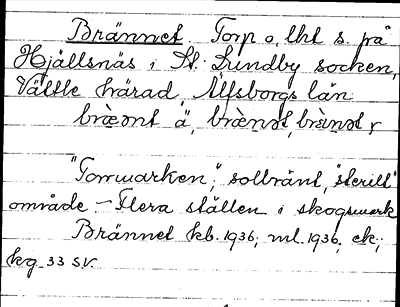 Brännet. Torp o. lht s. på
Hjällsnäs i St. Lundby socken,
Vättle härad, Älfsborgs län.
bræ̀ǝnt ä, brænǝt,
"Torrmarken", solbränt, "sterilt"
område - Flera ställen i skogsmark
Brännet kb. 1936; ml. 1936, ek.;
kg. 33 SV.